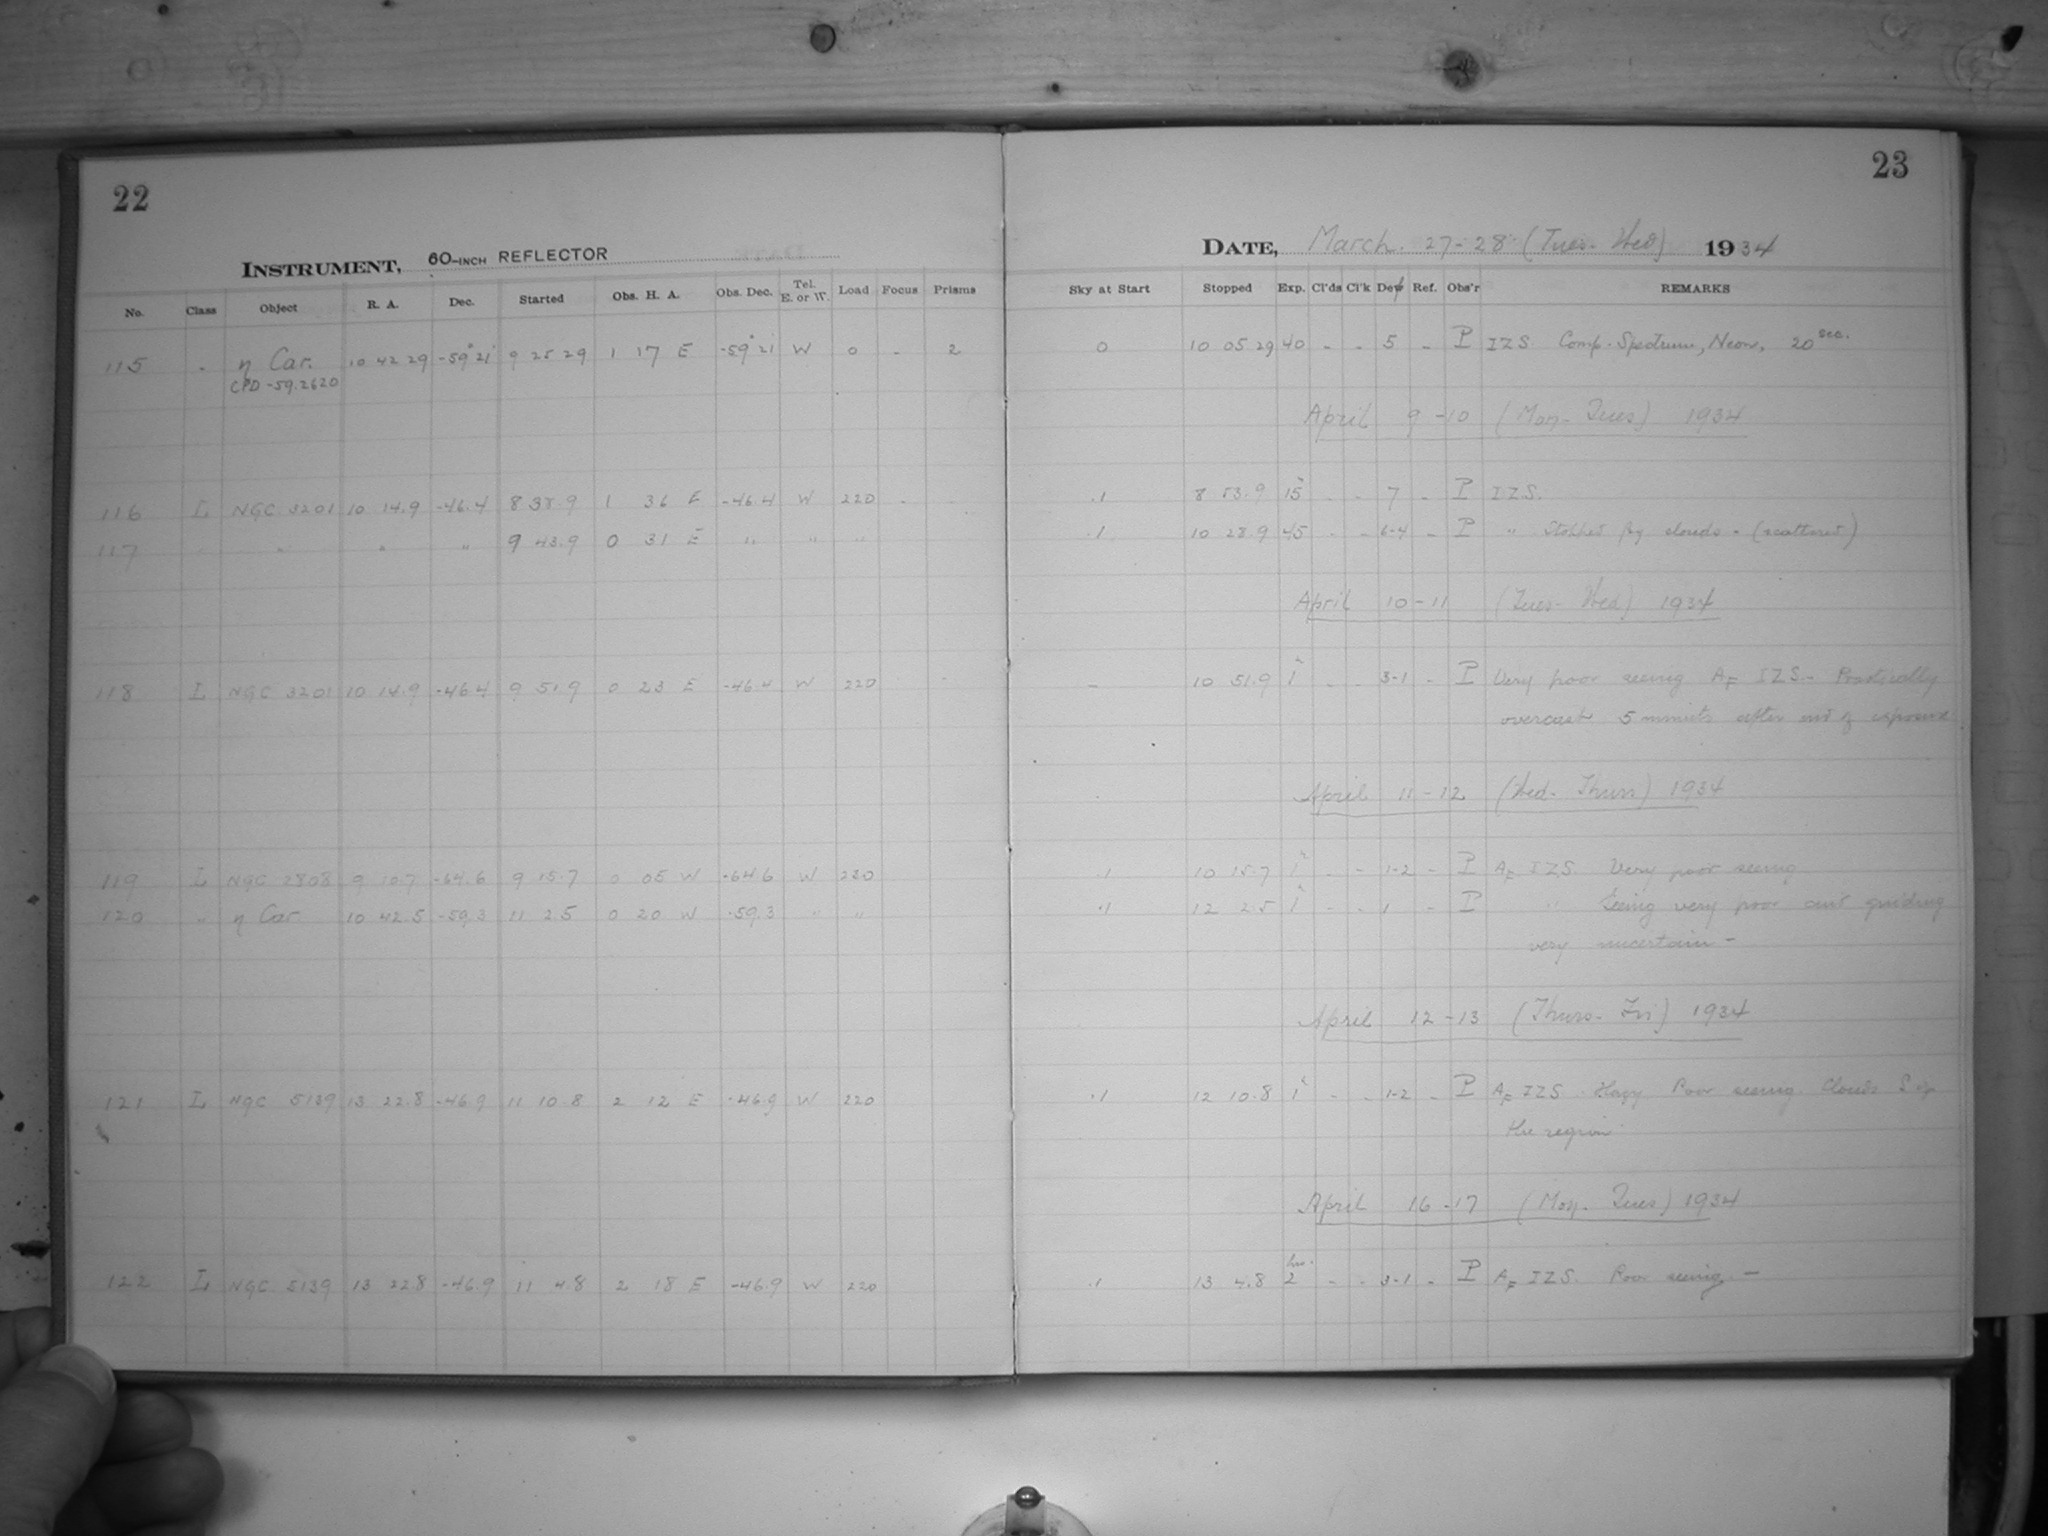 22
INSTRUMENT, 60-INCH REFLECTOR
No. Class Object R. A. Dec. Started Obs. H. A. Obs. Dec. Tel. E. or W. Load Focus Prisms
115 - η Car. 10 42 29 -59°21' 9 25 29 1 17 E -59°21' W 0 - 2
CPD -59.2620
116 L NGC 3201 10 14.9 -46.4 8 38.9 1 36 E -46.4 W 220 - -
117 " " " " 9 43.9 0 31 E " " "
118 L NGC 3201 10 14.9 -46.4 9 51.9 0 23 E -46.4 W 220 - -
119 L NGC 2808 9 10.7 -64.6 9 15.7 0 05 W -64.6 W 220
120 " η Car 10 42.5 -59.3 11 2.5 0 20 W -59.3 " "
121 L NGC 5139 13 22.8 -46.9 11 10.8 2 12 E -46.9 W 220
122 L NGC 5139 13 22.8 -46.9 11 4.8 2 18 E -46.9 W 220
23
DATE, March 27-28 (Tues-Wed) 1934
Sky at Start Stopped Exp. Cl'ds Cl'k Dew Ref. Obs'r REMARKS
0 10 05 29 40 - - 5 - P IZS Comp. Spectrum, Neon, 20 sec.
April 9-10 (Mon-Tues) 1934
.1 8 53.9 15 - - 7 - P IZS.
.1 10 28.9 45 - - 6-4 - P " Stopped by clouds - (scattered)
April 10-11 (Tues-Wed) 1934
- 10 51.9 1h - - 3-1 - P Very poor seeing AF IZS - Practically
overcast 5 minutes after end of exposure
April 11-12 (Wed-Thurs) 1934
.1 10 15.7 1h - - 1-2 - P AF IZS Very poor seeing
.1 12 2.5 1h - - 1 - P " Seeing very poor and guiding
very uncertain -
April 12-13 (Thurs-Fri) 1934
.1 12 10.8 1h - - 1-2 - P AF IZS. Hazy Poor seeing. Clouds S of
the region
April 16-17 (Mon-Tues) 1934
.1 13 4.8 2 hrs. - - 3-1 - P AF IZS. Poor seeing. -